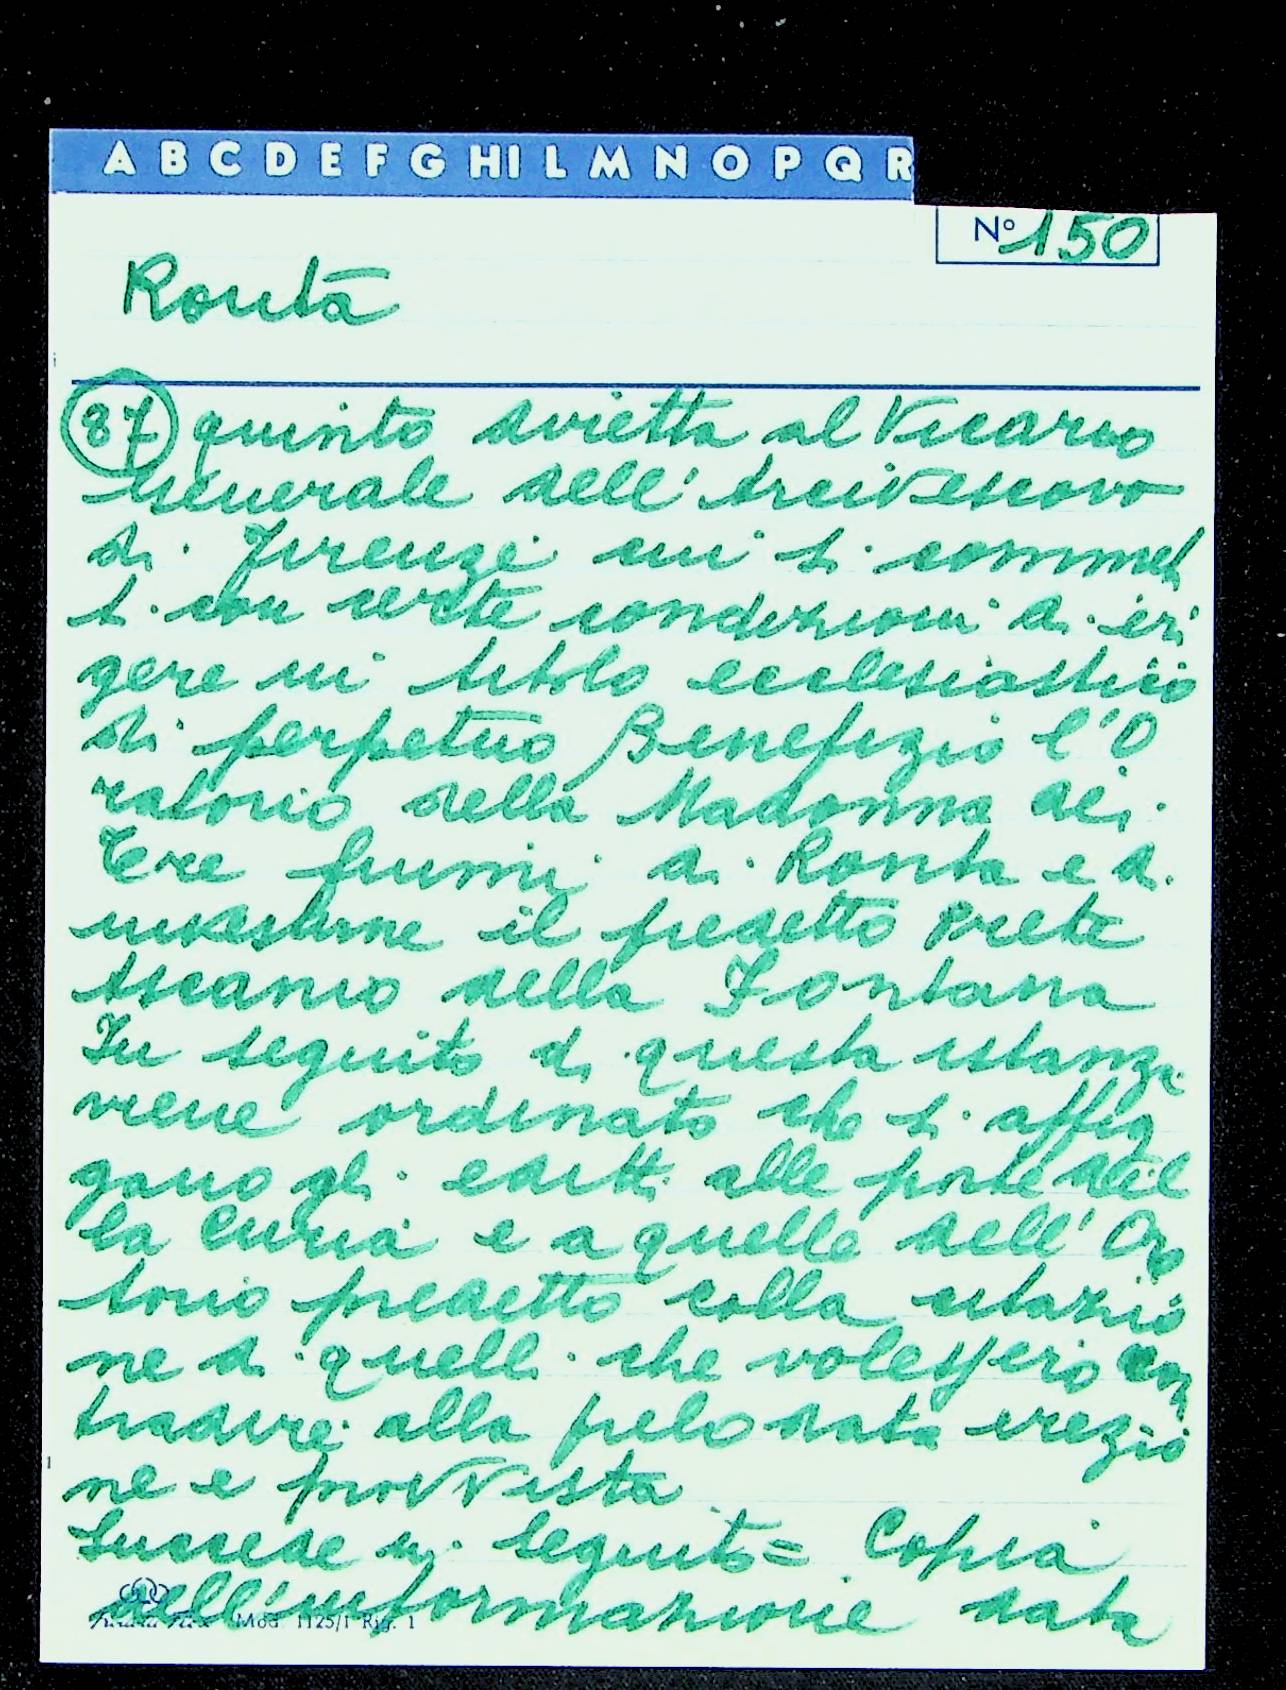 A B C D E F G H I L M N O P Q R
N° 150
Ronta
87 quinto diretta al Vicario
Generale dell'Arcivescovo
di Firenze cui si commet
ti con certe condizioni di eri
gere in titolo ecclesiastico
di perpetuo Benefizio l'O
ratorio della Madonna dei
Tre fiumi di Ronta e d.
investirne il predetto Prete
Ascanio della Fontana
In seguito di questa istanza
viene ordinato che si affig
gano gli editti alle porte del
la Curia e a quelle dell'Ora
torio predetto colla citazio
ne di quelli che volessero con
tradire alla prelodata erezio
ne e provvista
Succede in seguito = Copia
dell'informazione data
Mod. 1125/1 Rig. 1